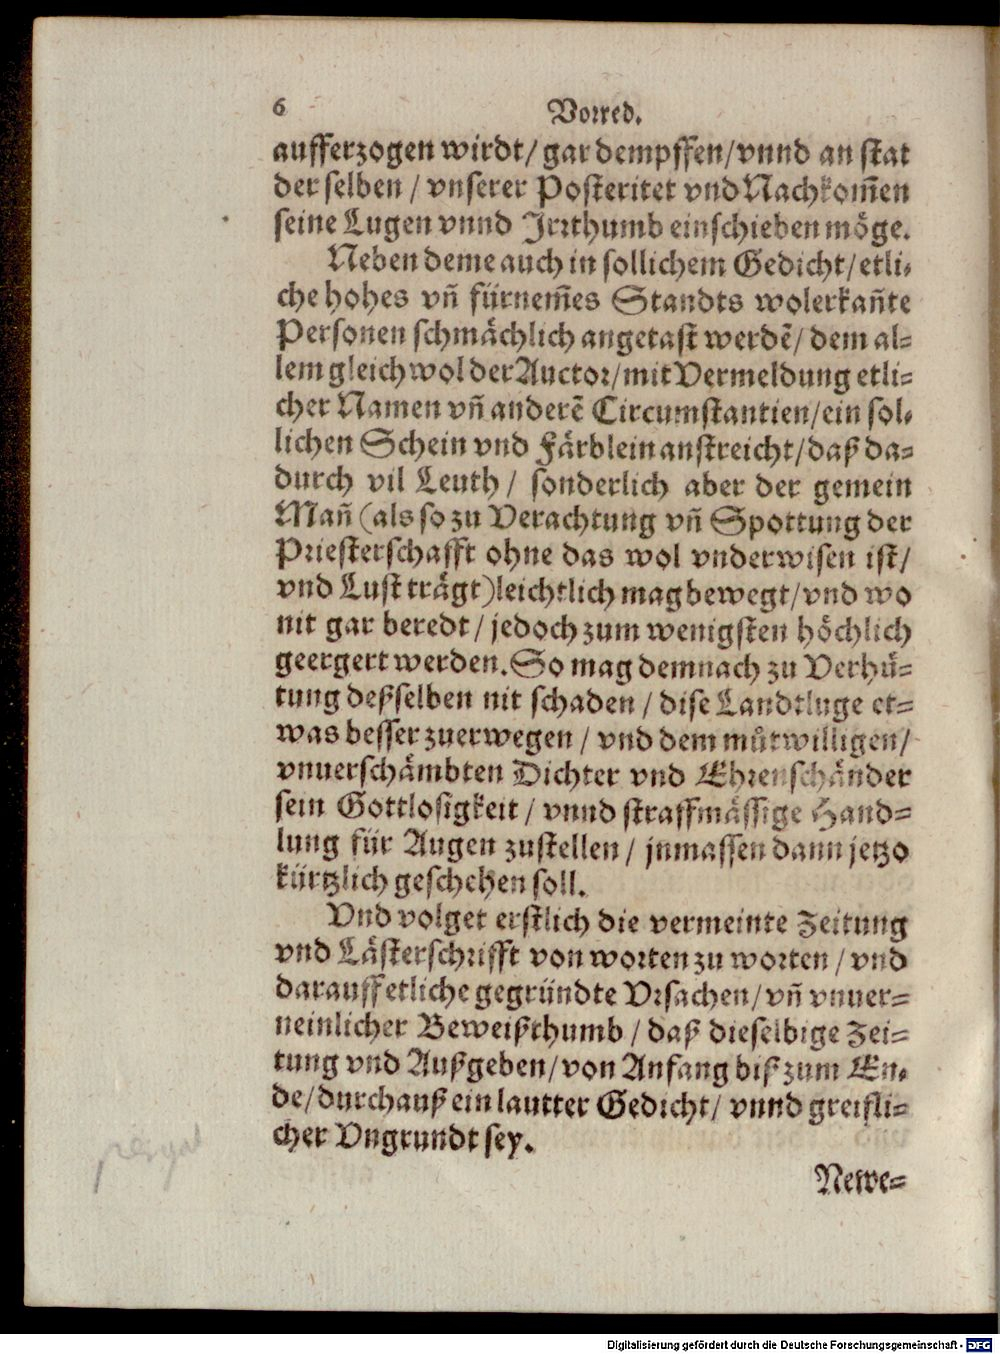 6
Vorred.
aufferzogen wirdt/ gar dempffen/ vnnd an stat
der selben / vnserer Posteritet vnd Nachkom̃en
seine Lugen vnnd Jrrthumb einschieben möge.
Neben deme auch in sollichem Gedicht/ etli-
che hohes vñ fürnem̃es Standts wolerkañte
Personen schmächlich angetast werdẽ/ dem al-
lem gleich wol der Auctor/ mit Vermeldung etli-
cher Namen vñ anderẽ Circumstantien/ ein sol-
lichen Schein vnd Färblein anstreicht/ daß da-
durch vil Leuth / sonderlich aber der gemein
Mañ (als so zu Verachtung vñ Spottung der
Priesterschafft ohne das wol vnderwisen ist/
vnd Lust trägt) leichtlich mag bewegt/ vnd wo
nit gar beredt / jedoch zum wenigsten höchlich
geergert werden. So mag demnach zu Verhü-
tung deßselben nit schaden / dise Landtluge et-
was besser zuerwegen / vnd dem můtwilligen/
vnuerschämbten Dichter vnd Ehrenschänder
sein Gottlosigkeit / vnnd straffmässige Hand-
lung für Augen zustellen / jnmassen dann jetzo
kürtzlich geschehen soll.
Vnd volget erstlich die vermeinte Zeitung
vnd Lästerschrifft von worten zu worten / vnd
darauff etliche gegründte Vrsachen/ vñ vnuer-
neinlicher Beweißthumb / daß dieselbige Zei-
tung vnd Außgeben/ von Anfang biß zum En-
de/ durchauß ein lautter Gedicht/ vnnd greifli-
cher Vngrundt sey.
Newe-
Digitalisierung gefördert durch die Deutsche Forschungsgemeinschaft - DFG